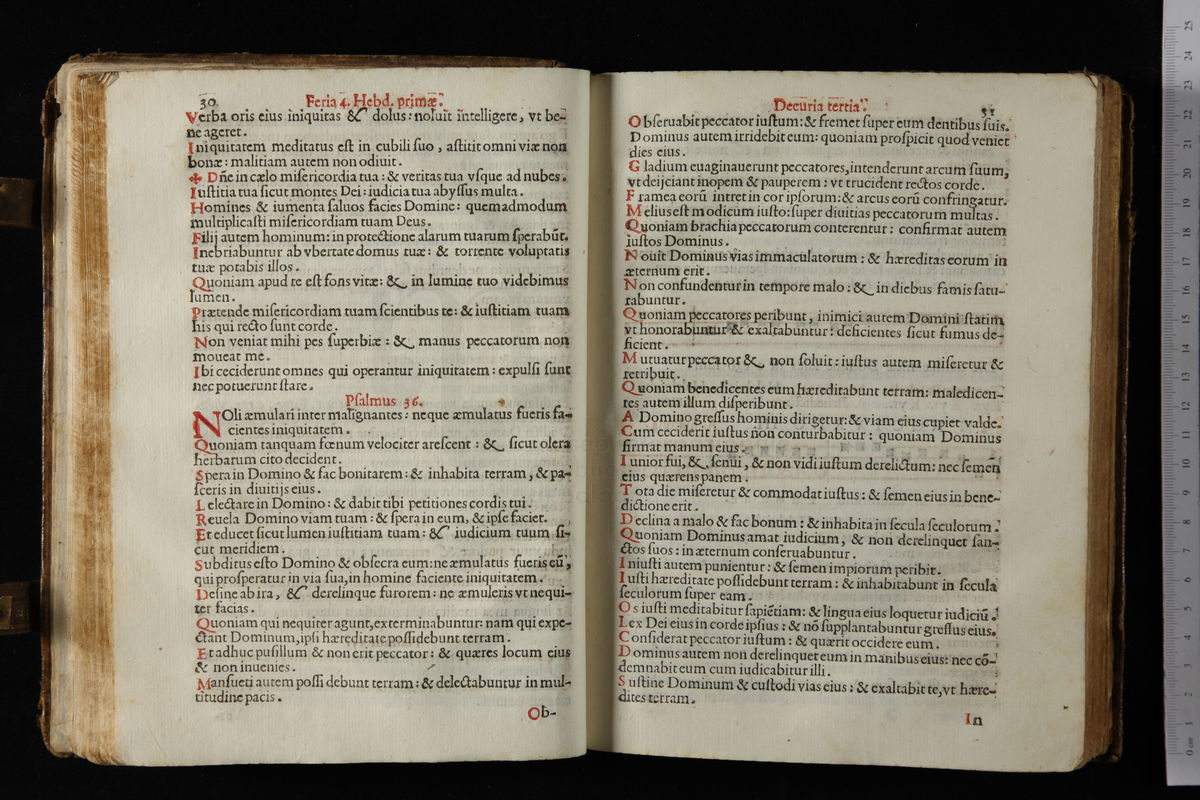 30
Feria 4. Hebd. primæ.
Verba oris eius iniquitas & dolus: noluit intelligere, vt be-
ne ageret.
Iniquitatem meditatus est in cubili suo, astitit omni viæ non
bonæ: malitiam autem non odiuit.
✠ Dñe in cælo misericordia tua: & veritas tua vsque ad nubes.
Iustitia tua sicut montes Dei: iudicia tua abyssus multa.
Homines & iumenta saluos facies Domine: quemadmodum
multiplicasti misericordiam tuam Deus.
Filij autem hominum: in protectione alarum tuarum sperabūt.
Inebriabuntur ab vbertate domus tuæ: & torrente voluptatis
tuæ potabis illos.
Quoniam apud te est fons vitæ: & in lumine tuo videbimus
lumen.
Prætende misericordiam tuam scientibus te: & iustitiam tuam
his qui recto sunt corde.
Non veniat mihi pes superbiæ: & manus peccatorum non
moueat me.
Ibi ceciderunt omnes qui operantur iniquitatem: expulsi sunt
nec potuerunt stare.
Psalmus 36.
NOli æmulari inter malignantes: neque æmulatus fueris fa-
cientes iniquitatem.
Quoniam tanquam fœnum velociter arescent: & sicut olera
herbarum cito decident.
Spera in Domino & fac bonitarem: & inhabita terram, & pa-
sceris in diuitijs eius.
Lelectare in Domino: & dabit tibi petitiones cordis tui.
Reuela Domino viam tuam: & spera in eum, & ipse faciet.
Et educet sicut lumen iustitiam tuam: & iudicium tuum si-
cut meridiem.
Subditus esto Domino & obsecra eum: ne æmulatus fueris eū,
qui prosperatur in via sua, in homine faciente iniquitatem.
Desine ab ira, & derelinque furorem: ne æmuleris vt nequi-
ter facias.
Quoniam qui nequiter agunt, exterminabuntur: nam qui expe-
ctant Dominum, ipsi hæreditate possidebunt terram.
Et adhuc pusillum & non erit peccator: & quæres locum eius
& non inuenies.
Mansueti autem possidebunt terram: & delectabuntur in mul-
titudine pacis.
Ob-
Decuria tertia.
31
Obseruabit peccator iustum: & fremet super eum dentibus suis.
Dominus autem irridebit eum: quoniam prospicit quod veniet
dies eius.
Gladium euaginauerunt peccatores, intenderunt arcum suum,
vt deijciant inopem & pauperem: vt trucident rectos corde.
Framea eorū intret in cor ipsorum: & arcus eorū confringatur.
Melius est modicum iusto: super diuitias peccatorum multas.
Quoniam brachia peccatorum conterentur: confirmat autem
iustos Dominus.
Nouit Dominus vias immaculatorum: & hæreditas eorum in
æternum erit.
Non confundentur in tempore malo: & in diebus famis satu-
rabuntur.
Quoniam peccatores peribunt, inimici autem Domini statim
vt honorabuntur & exaltabuntur: deficientes sicut fumus de-
ficient.
Mutuatur peccator & non soluit: iustus autem miseretur &
retribuit.
Quoniam benedicentes eum hæreditabunt terram: maledicen-
tes autem illum disperibunt.
A Domino gressus hominis dirigetur: & viam eius cupiet valde.
Cum ceciderit iustus non conturbabitur: quoniam Dominus
firmat manum eius.
Iunior fui, & senui, & non vidi iustum derelictum: nec semen
eius quærens panem.
Tota die miseretur & commodat iustus: & semen eius in bene-
dictione erit.
Declina a malo & fac bonum: & inhabita in secula seculotum.
Quoniam Dominus amat iudicium, & non derelinquet san-
ctos suos: in æternum conseruabuntur.
Iniusti autem punientur: & semen impiorum peribit.
Iusti hæreditate possidebunt terram: & inhabitabunt in secula
seculorum super eam.
Os iusti meditabitur sapiētiam: & lingua eius loquetur iudiciū.
Lex Dei eius in corde ipsius: & nō supplantabuntur gressus eius.
Considerat peccator iustum: & quærit occidere eum.
Dominus autem non derelinquet eum in manibus eius: nec cō-
demnabit eum cum iudicabitur illi.
Sustine Dominum & custodi vias eius: & exaltabit te, vt hære-
dites terram.
In